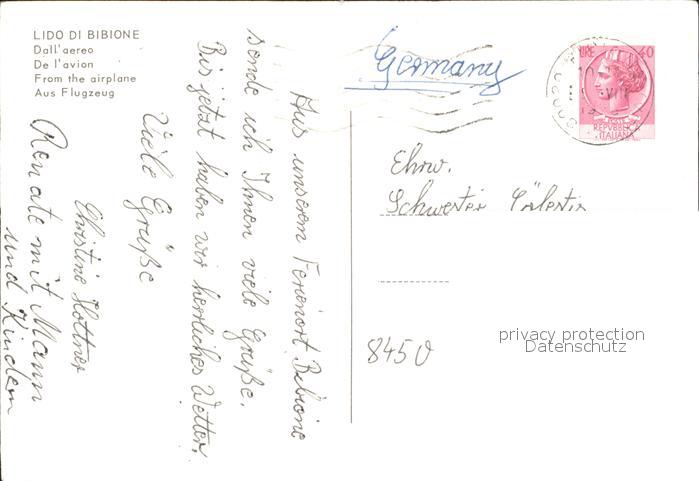 LIDO DI BIBIONE
Dall'aereo
De l'avion
From the airplane
Aus Flugzeug
Aus unserem Ferienort Bibione
sende ich Ihnen viele Grüße.
Bis jetzt haben wir herrliches Wetter.
Viele Grüße
Christine Hottner
Renate mit Mann
und Kindern
Germany
LIRE 40
POSTE
REPVBBLICA
ITALIANA
Ehrw.
Schwester Cölestin
8450
privacy protection
Datenschutz